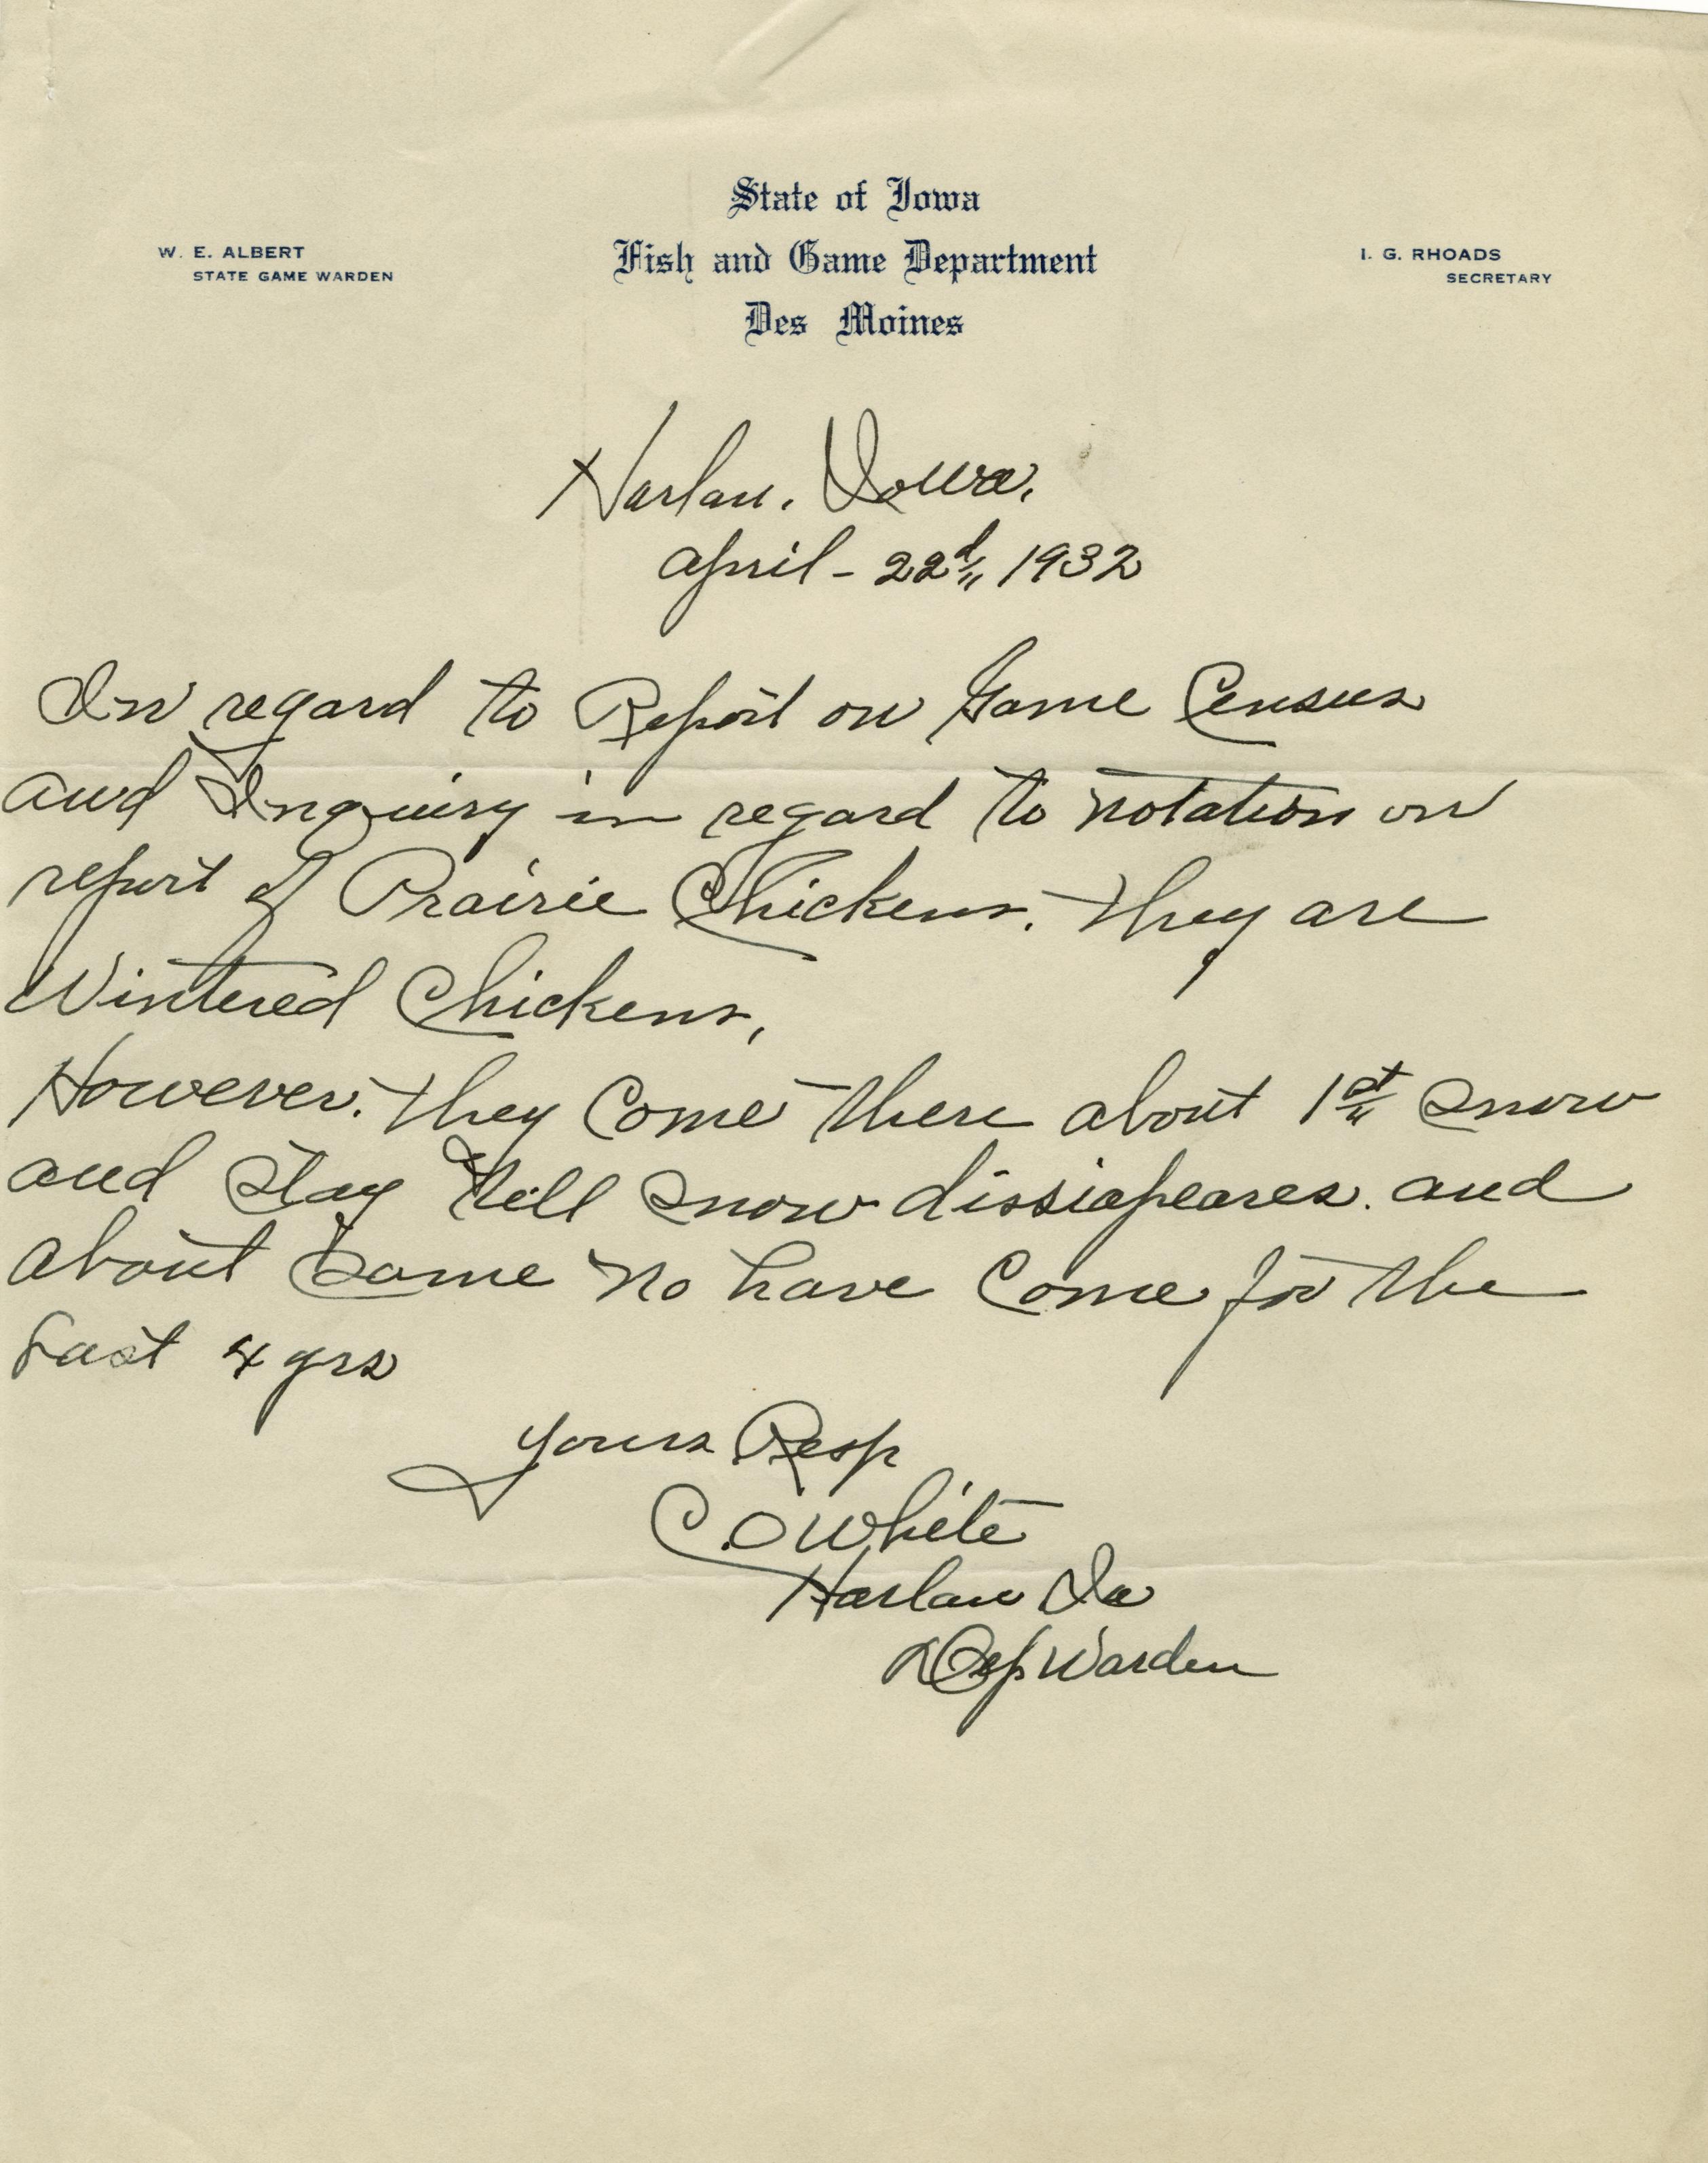 State of Iowa
Fish and Game Department
Des Moines
W. E. ALBERT
STATE GAME WARDEN
I. G. RHOADS
SECRETARY
Harlan, Iowa.
April - 22d, 1932
In regard to Report on Game Census
and Inquiry in regard to notation on
report of Prairie Chickens. They are
Wintered Chickens,
However. they Come there about 1st snow
and stay till snow dissiapeares. and
about same no have Come for the
Last 4 yrs
Yours Resp
C.O White
Harlan Ia
Dep Warden